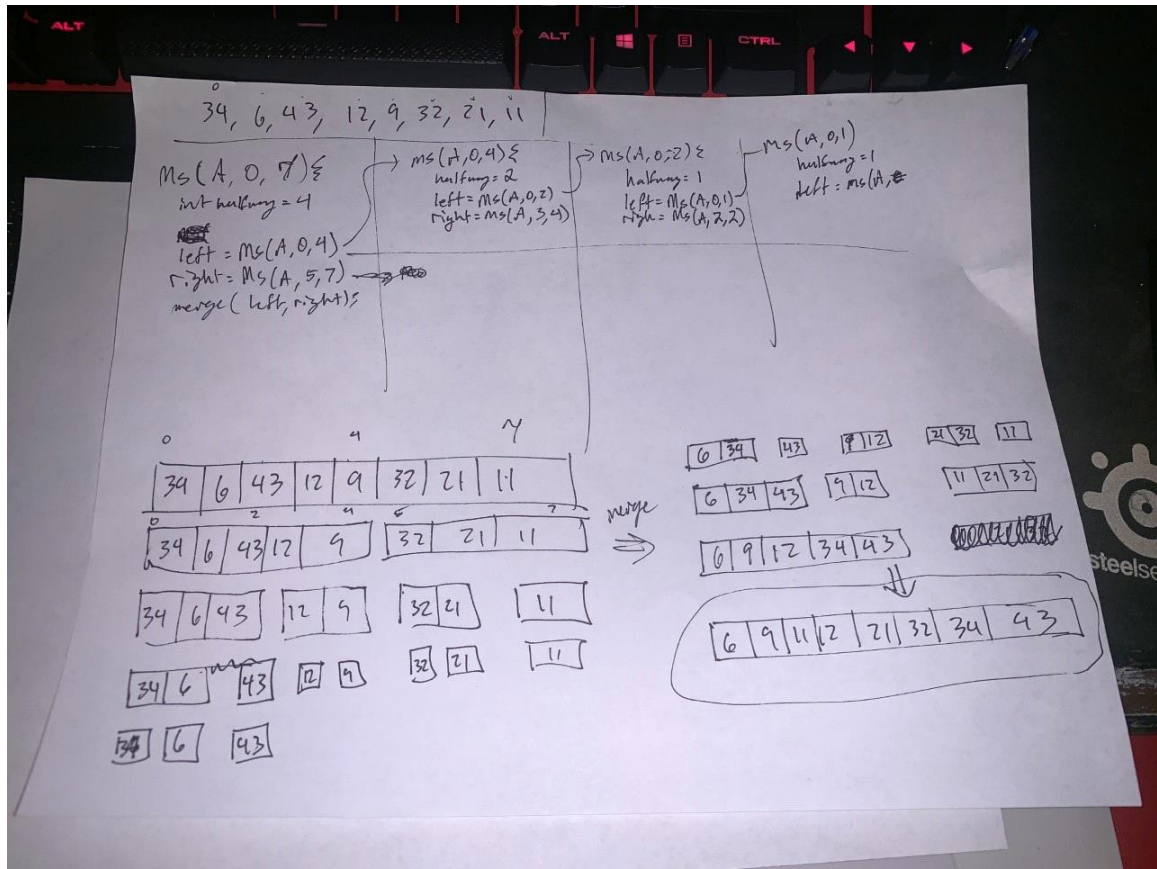 ALT
ALT
CTRL
0
34, 6, 43, 12, 9, 32, 21, 11
Ms(A, 0, 7){
int halfway = 4
left = Ms(A, 0, 4)
right = Ms(A, 5, 7)
merge(left, right);
ms(A, 0, 4){
halfway = 2
left = Ms(A, 0, 2)
right = Ms(A, 3, 4)
Ms(A, 0, 2){
halfway = 1
left = Ms(A, 0, 1)
righ = Ms(A, 2, 2)
Ms(A, 0, 1)
halfway = 1
left = ms(A,
0 4 7
34 6 43 12 9 32 21 11
0 2 4 5 7
34 6 43 12 9 32 21 11
34 6 43 12 9 32 21 11
34 6 43 12 9 32 21 11
34 6 43
merge
6 34 43 9 12 21 32 11
6 34 43 9 12 11 21 32
6 9 12 34 43
6 9 11 12 21 32 34 43
steelse